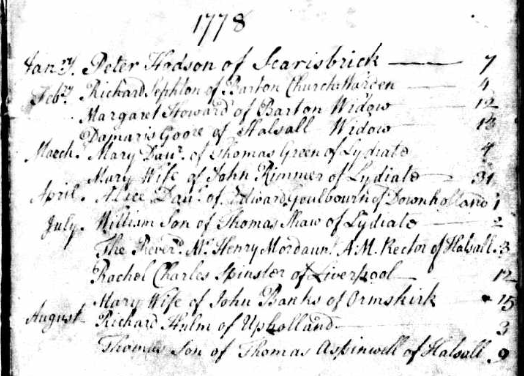 1778
Janry. Peter Hodson of Scarisbrick — 7
Febry. Richard Sephton of Barton Church Warden — 4
Margaret Howard of Barton Widow — 12
Damaris Goore of Halsall Widow 13
March. Mary Daur. of Thomas Green of Lydiate 4
Mary Wife of John Rimmer of Lydiate — 31
April. Alice Daur. of Edward Goulbourn of Downholland 1
July. William Son of Thomas Shaw of Lydiate — 2
The Reverd. Mr. Henry Mordaunt A.M. Rector of Halsall. 3
Rachel Charles Spinster of Liverpool — 12
Mary Wife of John Banks of Ormskirk — 15
August Richard Hulm of Upholland — 3
Thomas Son of Thomas Aspinwell of Halsall 9